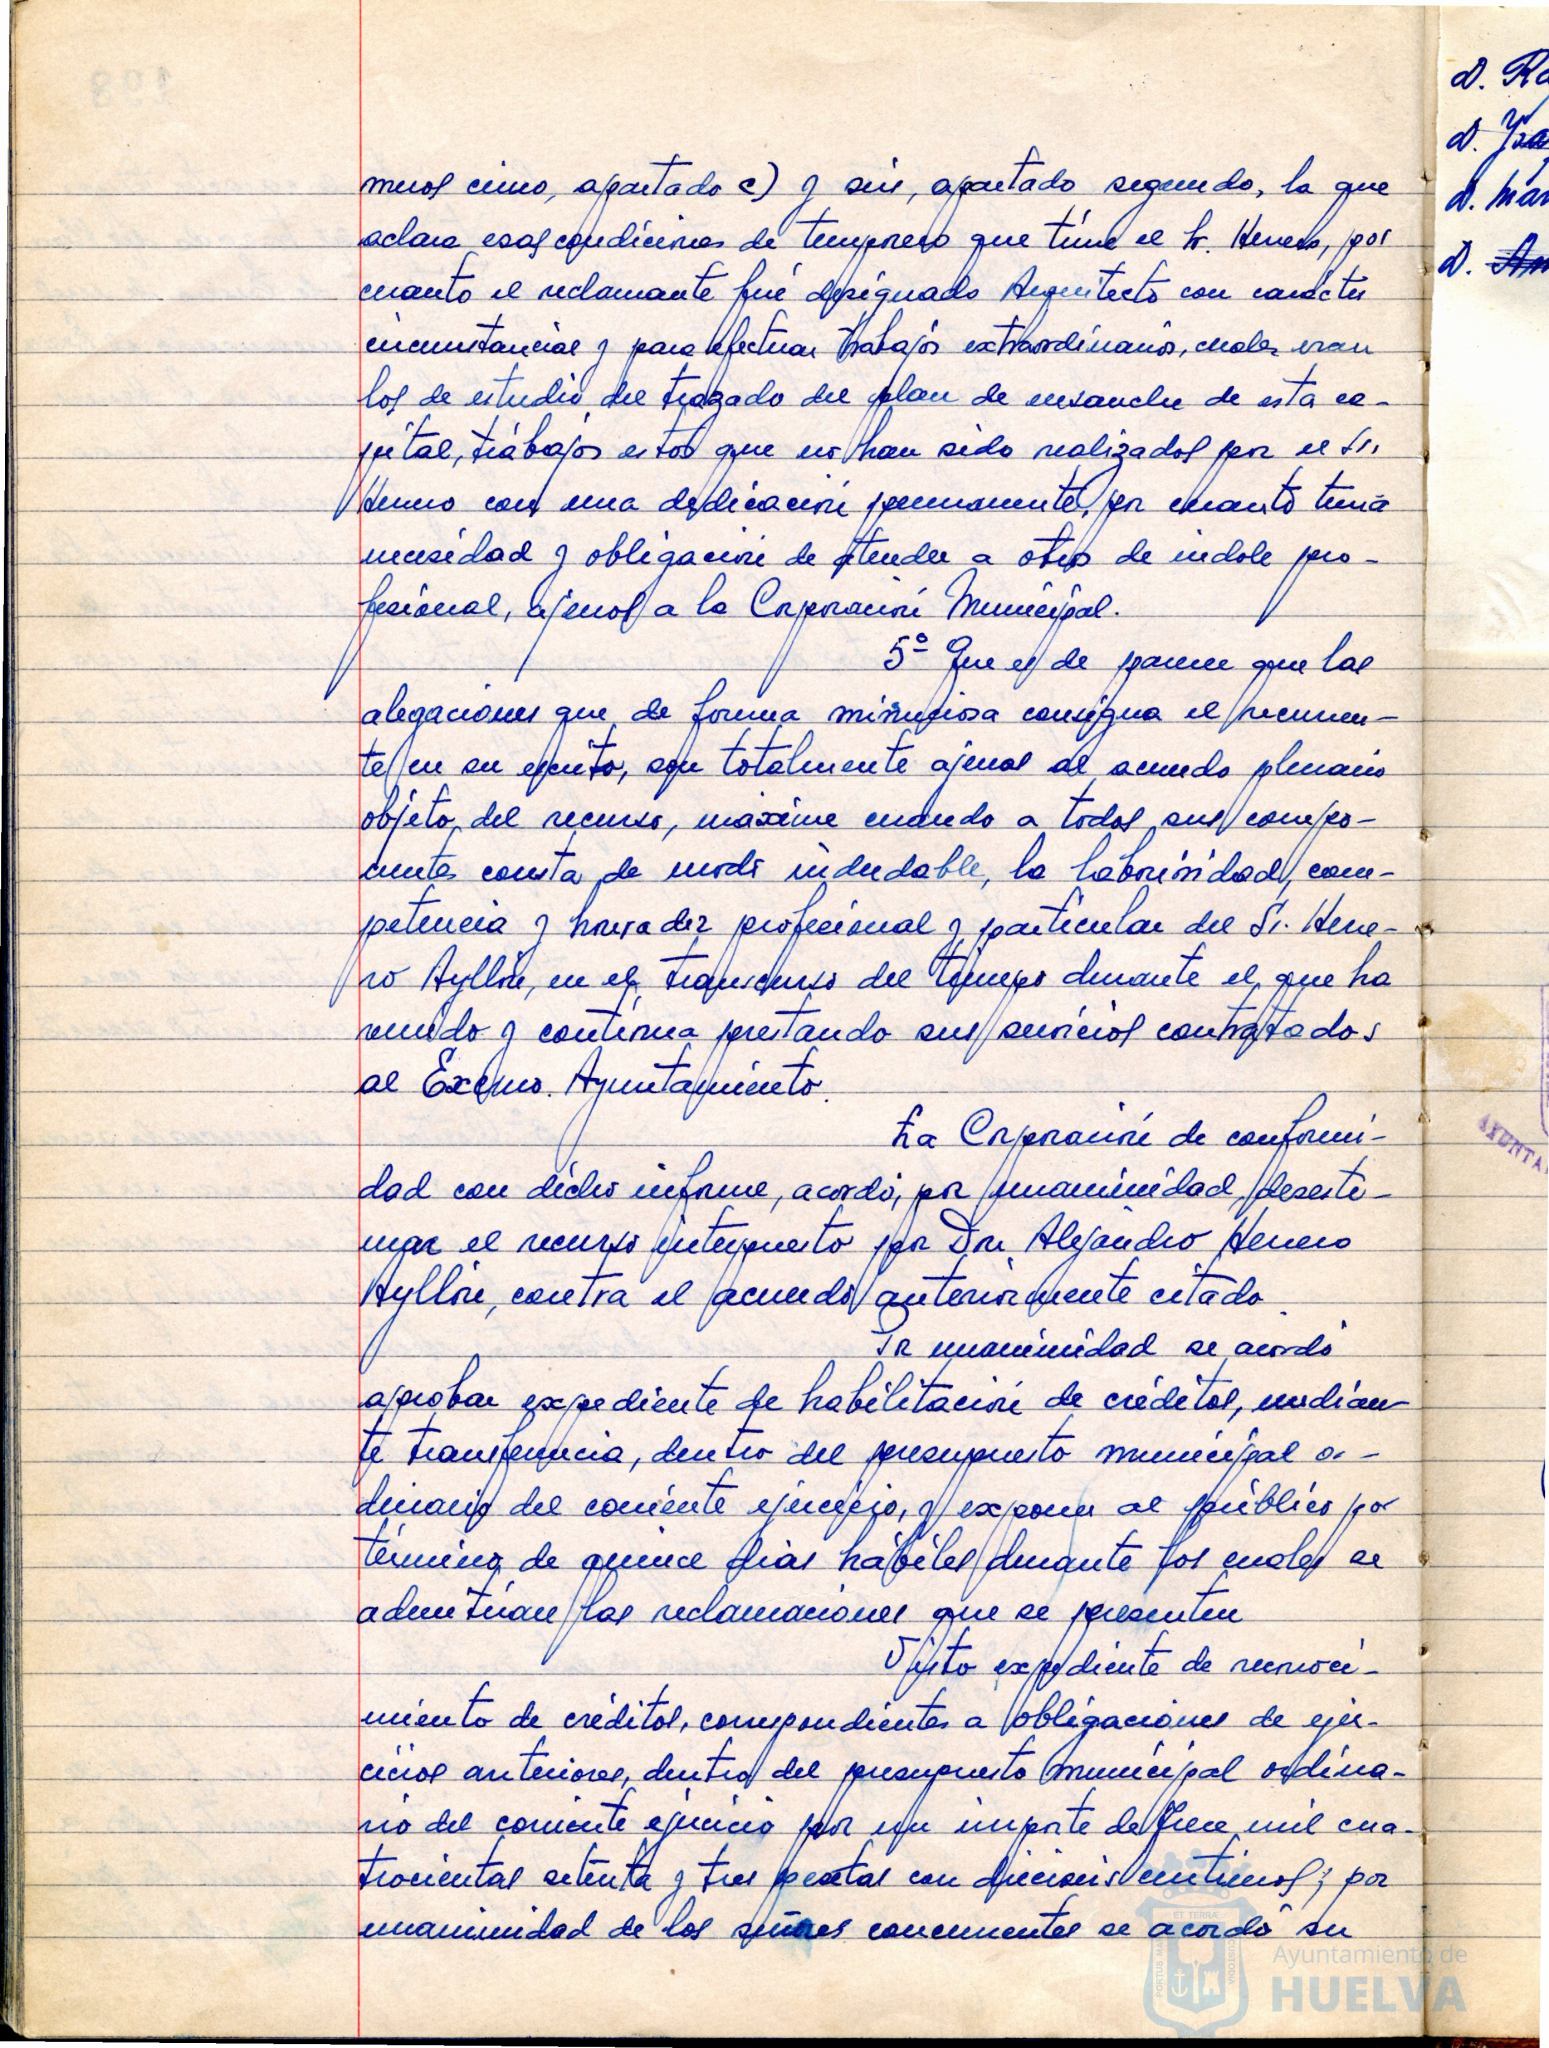 meros cinco, apartado c) y seis, apartado segundo, la que
aclara esas condiciones de temporero que tiene el Sr. Herrero, por
cuanto el reclamante fué designado Arquitecto con carácter
circunstancial y para efectuar trabajos extraordinarios, cuales eran
los de estudio del trazado del plan de ensanche de esta ca-
pital, trabajos estos que no han sido realizados por el Sr.
Herrero con una dedicación permanente, por cuanto tenía
necesidad y obligación de atender a otros de indole pro-
fesional, ajenos a la Corporación Municipal.
5º Que es de parecer que las
alegaciones que de forma minuciosa consigna el recurren-
te en su escrito, son totalmente ajenas al acuerdo plenario
objeto del recurso, máxime cuando a todos sus compo-
nentes consta de modo indudable, la laboriosidad, com-
petencia y honradez profesional y particular del Sr. Herre-
ro Ayllón, en el transcurso del tiempo durante el que ha
venido y continua prestando sus servicios contratados
al Excmo. Ayuntamiento.
La Corporación de conformi-
dad con dicho informe, acordó, por unanimidad, desesti-
mar el recurso interpuesto por Don Alejandro Herrero
Ayllón, contra el acuerdo anteriormente citado.
Por unanimidad se acordó
aprobar expediente de habilitación de créditos, median-
te transferencia, dentro del presupuesto municipal or-
dinario del corriente ejercicio, y exponer al público por
término de quince dias hábiles durante los cuales se
admitirían las reclamaciones que se presenten
Visto expediente de reconoci-
miento de créditos, correspondientes a obligaciones de ejer-
cicios anteriores, dentro del presupuesto municipal ordina-
rio del corriente ejercicio por un importe de trece mil cua-
trocientas setenta y tres pesetas con dieciseis centimos; por
unanimidad de los señores concurrentes se acordó su
D. Ra
D. Man
D.
AYUNTA
Ayuntamiento de
HUELVA